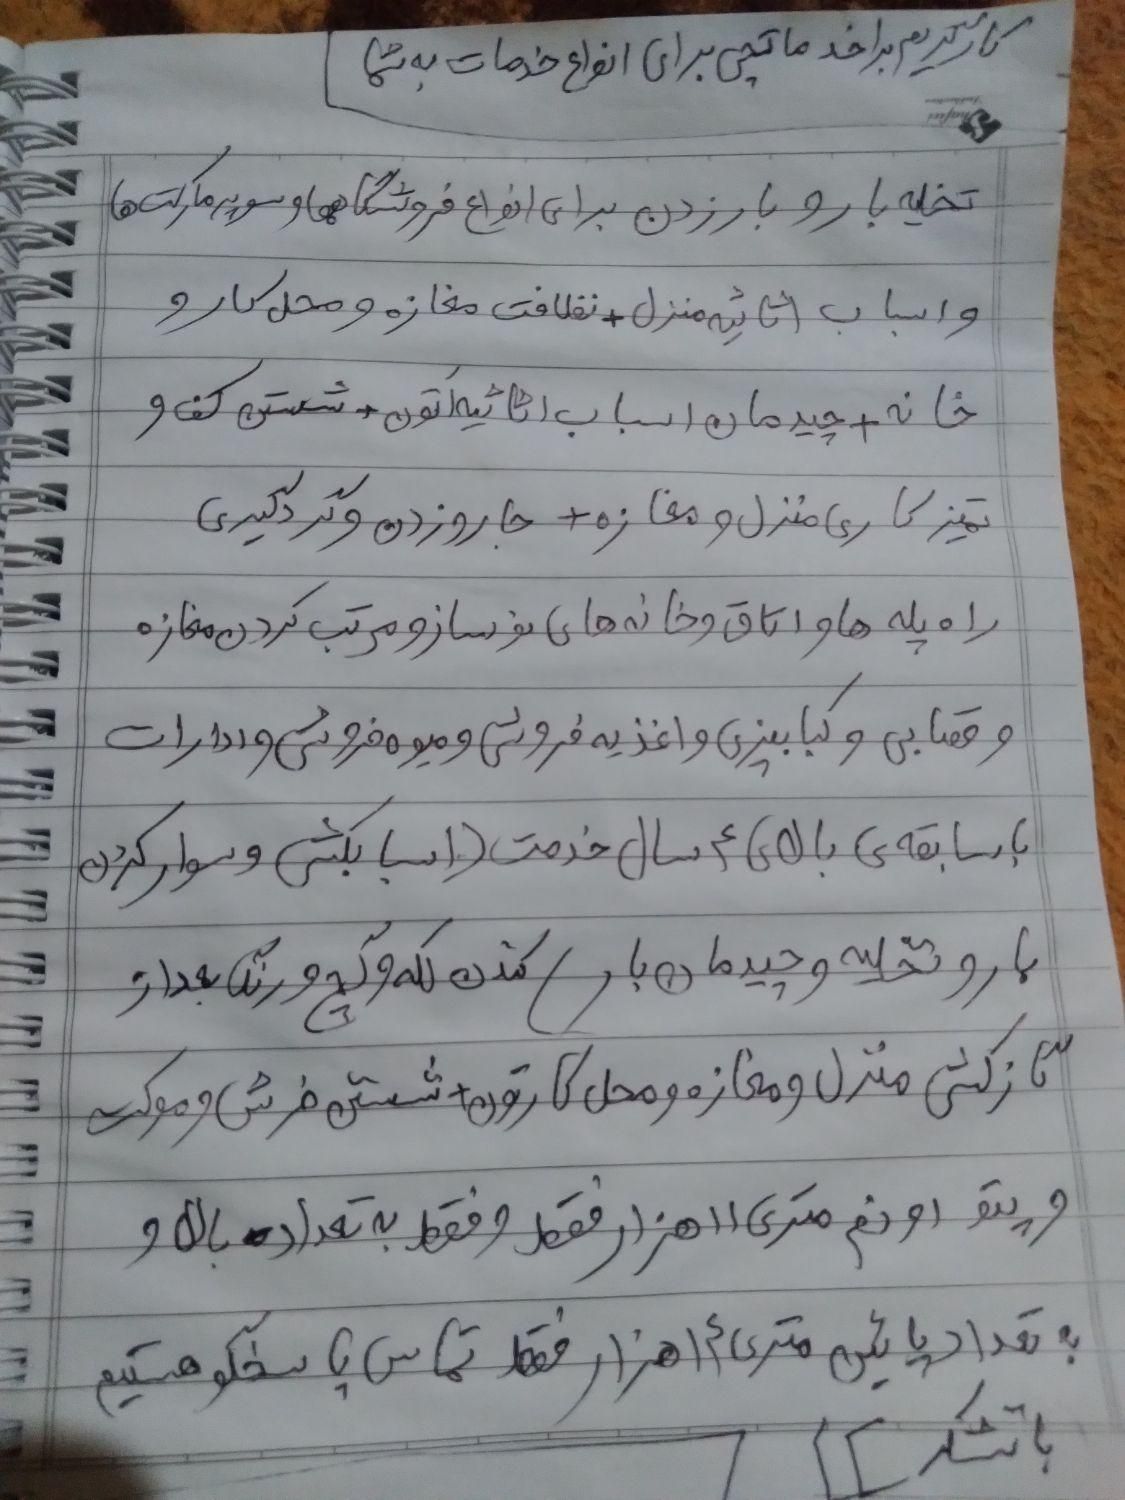 کارگریم برا خدماتچی برای انواع خدمات به شما
تخلیه بار و بار زدن برای انواع فروشگاهها و سوپر مارکت ها
و اسباب اثاثیه منزل + نظافت مغازه و محل کار و
خانه + چیدمان اسباب اثاثیه اتون + شستن کف و
تمیز کاری منزل و مغازه + جارو زدن و گردگیری
راه پله ها و اتاق و خانه های نوساز و مرتب کردن مغازه
و قصابی و کبابپزی و اغذیه فروشی و میوه فروشی و ادارات
با سابقه ی بالای ۴ سال خدمت (اسبابکشی و سوار کردن
بار و تخلیه و چیدمان بار) کندن لکه و گچ و رنگ بعد از
گازکشی منزل و مغازه و محل کارتون + شستن فرش و موکت
و پتو اونم متری ۱۱ هزار فقط و فقط به تعداد بالا و
به تعداد پایین متری ۱۴ هزار فقط تماس پاسخگو هستیم
با تشکر